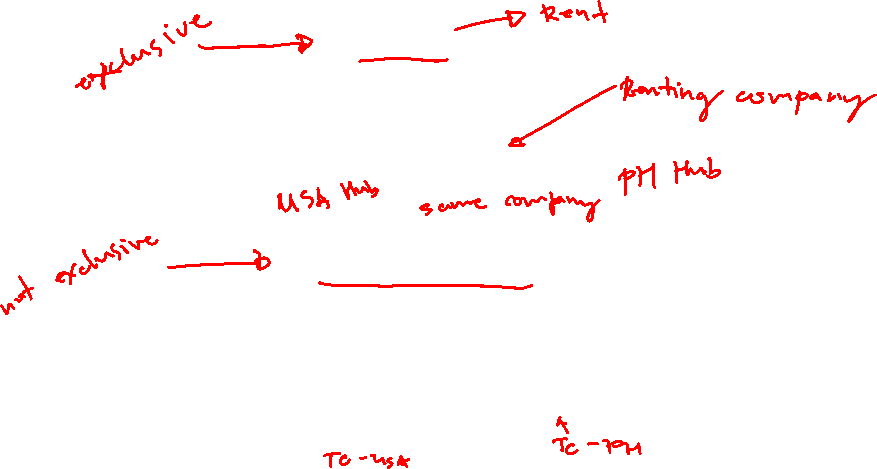 exclusive
Rent
Renting company
USA Hub same company PH Hub
not exclusive
A
TC - USA TC - PH